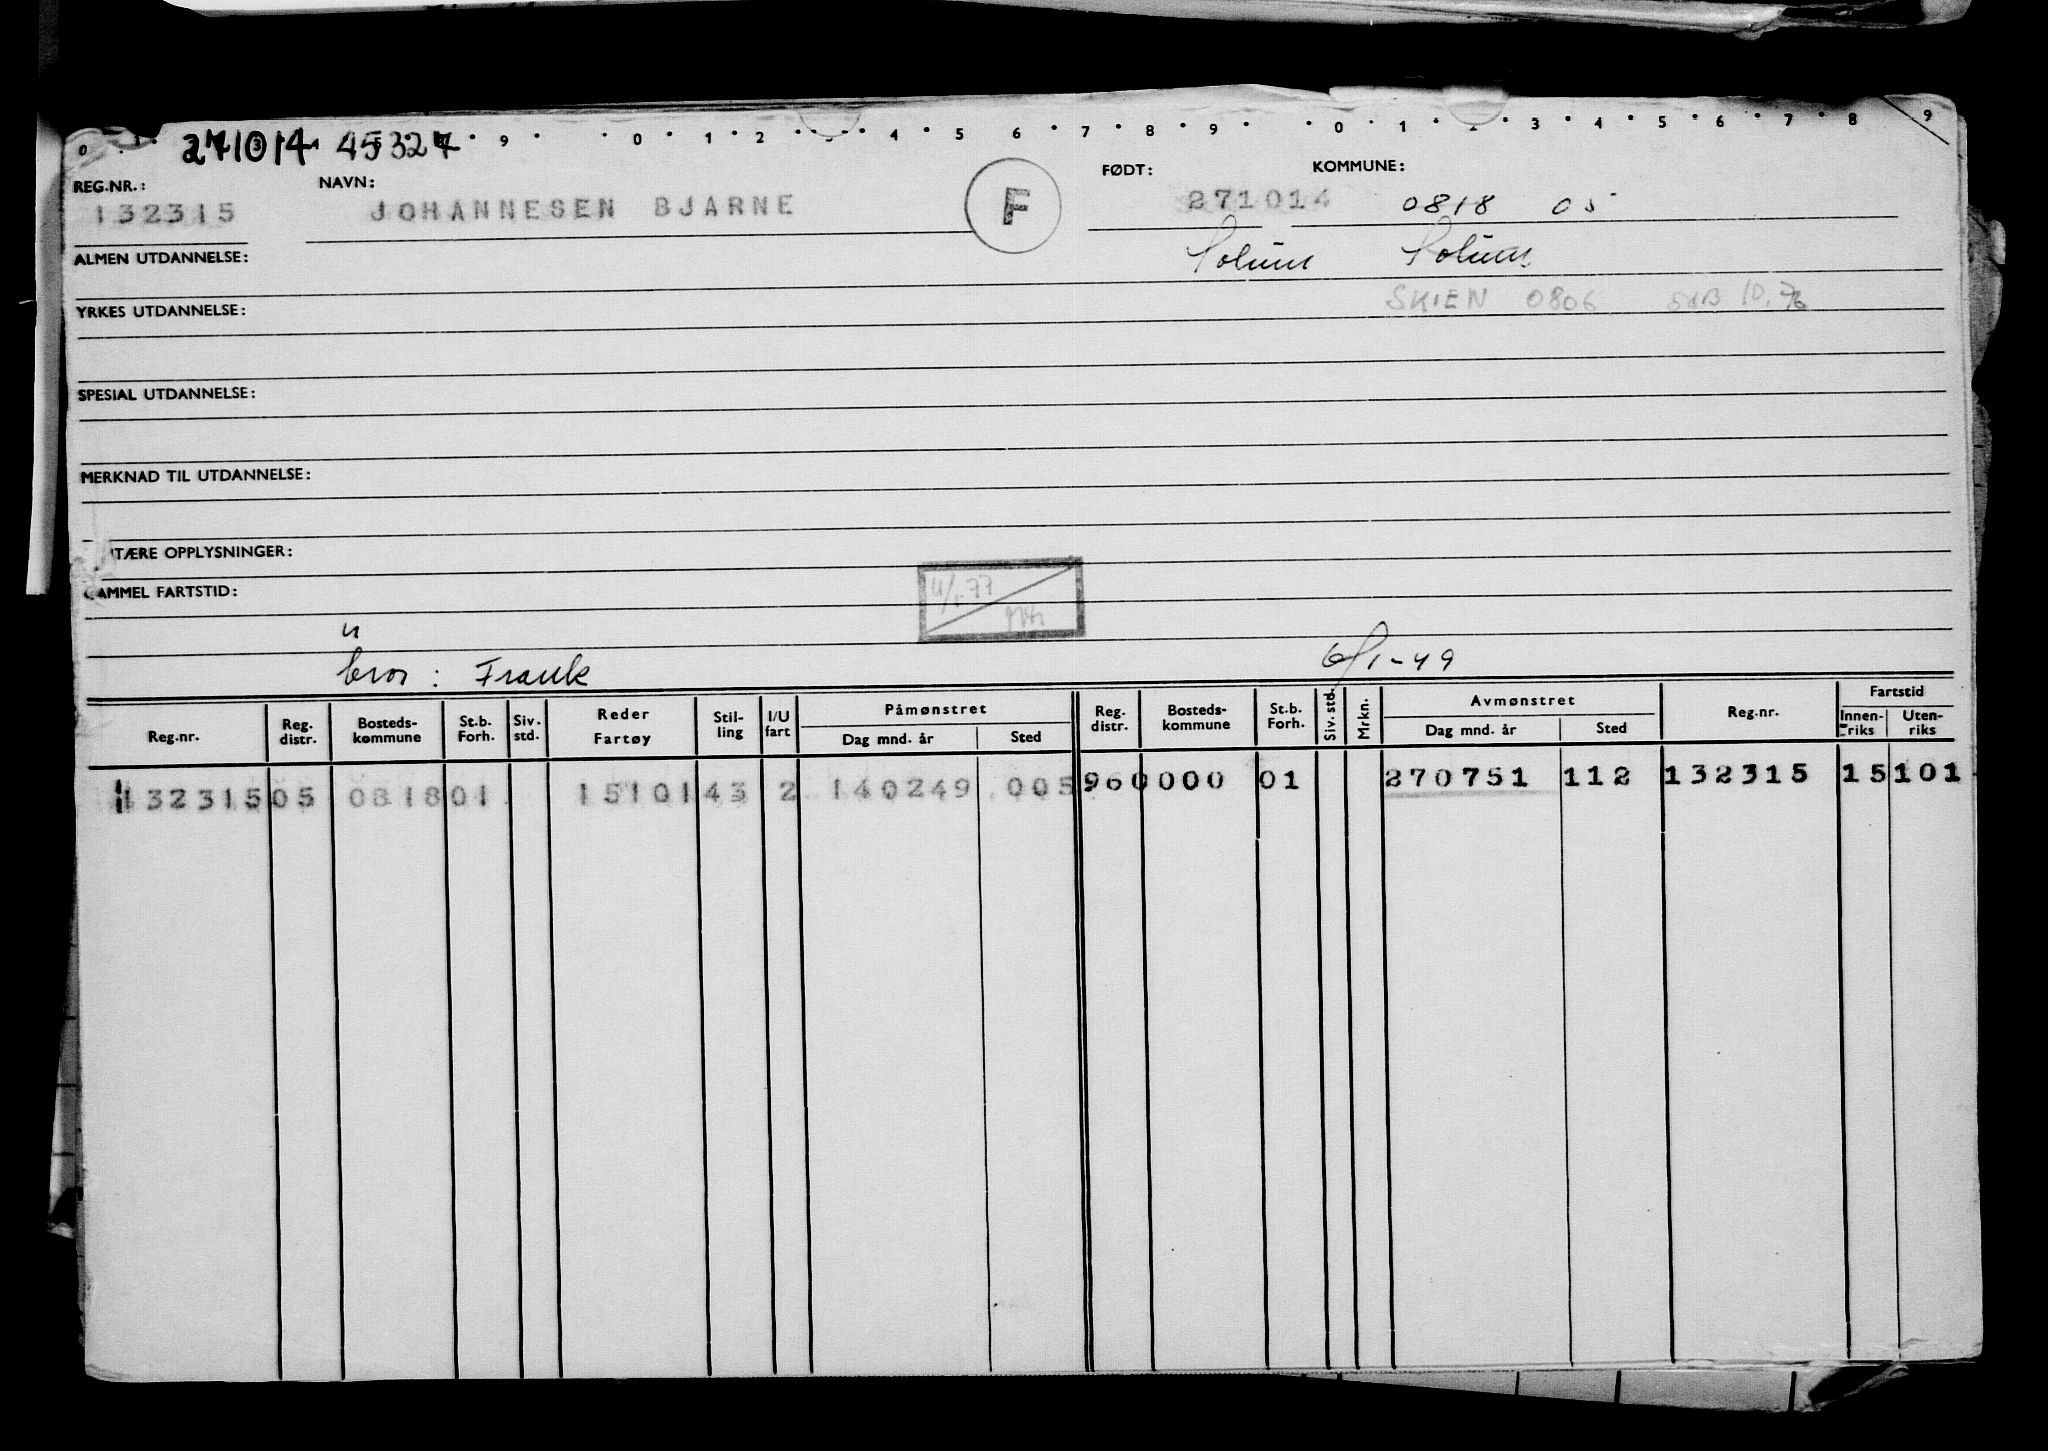 271014 45327
0 1 3 9 0 1 2 3 4 5 6 7 8 9 0 1 2 3 4 5 6 7 8 9
REG.NR.: NAVN: F FØDT: KOMMUNE:
132315 JOHANNESEN BJARNE 271014 0818 05
ALMEN UTDANNELSE: Solum Solum
YRKES UTDANNELSE: SKIEN 0806
SPESIAL UTDANNELSE:
MERKNAD TIL UTDANNELSE:
TÆRE OPPLYSNINGER:
GAMMEL FARTSTID:
bror: Frank 6/1-49
Reg.nr. Reg. distr. Bosteds-kommune St.b. Forh. Siv. std. Reder Fartøy Stil-ling I/U fart Påmønstret Dag mnd. år Sted Reg. distr. Bosteds-kommune St.b. Forh. Siv. std. Mrkn. Avmønstret Dag mnd. år Sted Reg.nr. Fartstid Innen-riks Uten-riks
132315 05 0818 01 15101 43 2 140249 005 960000 01 270751 112 132315 15 101